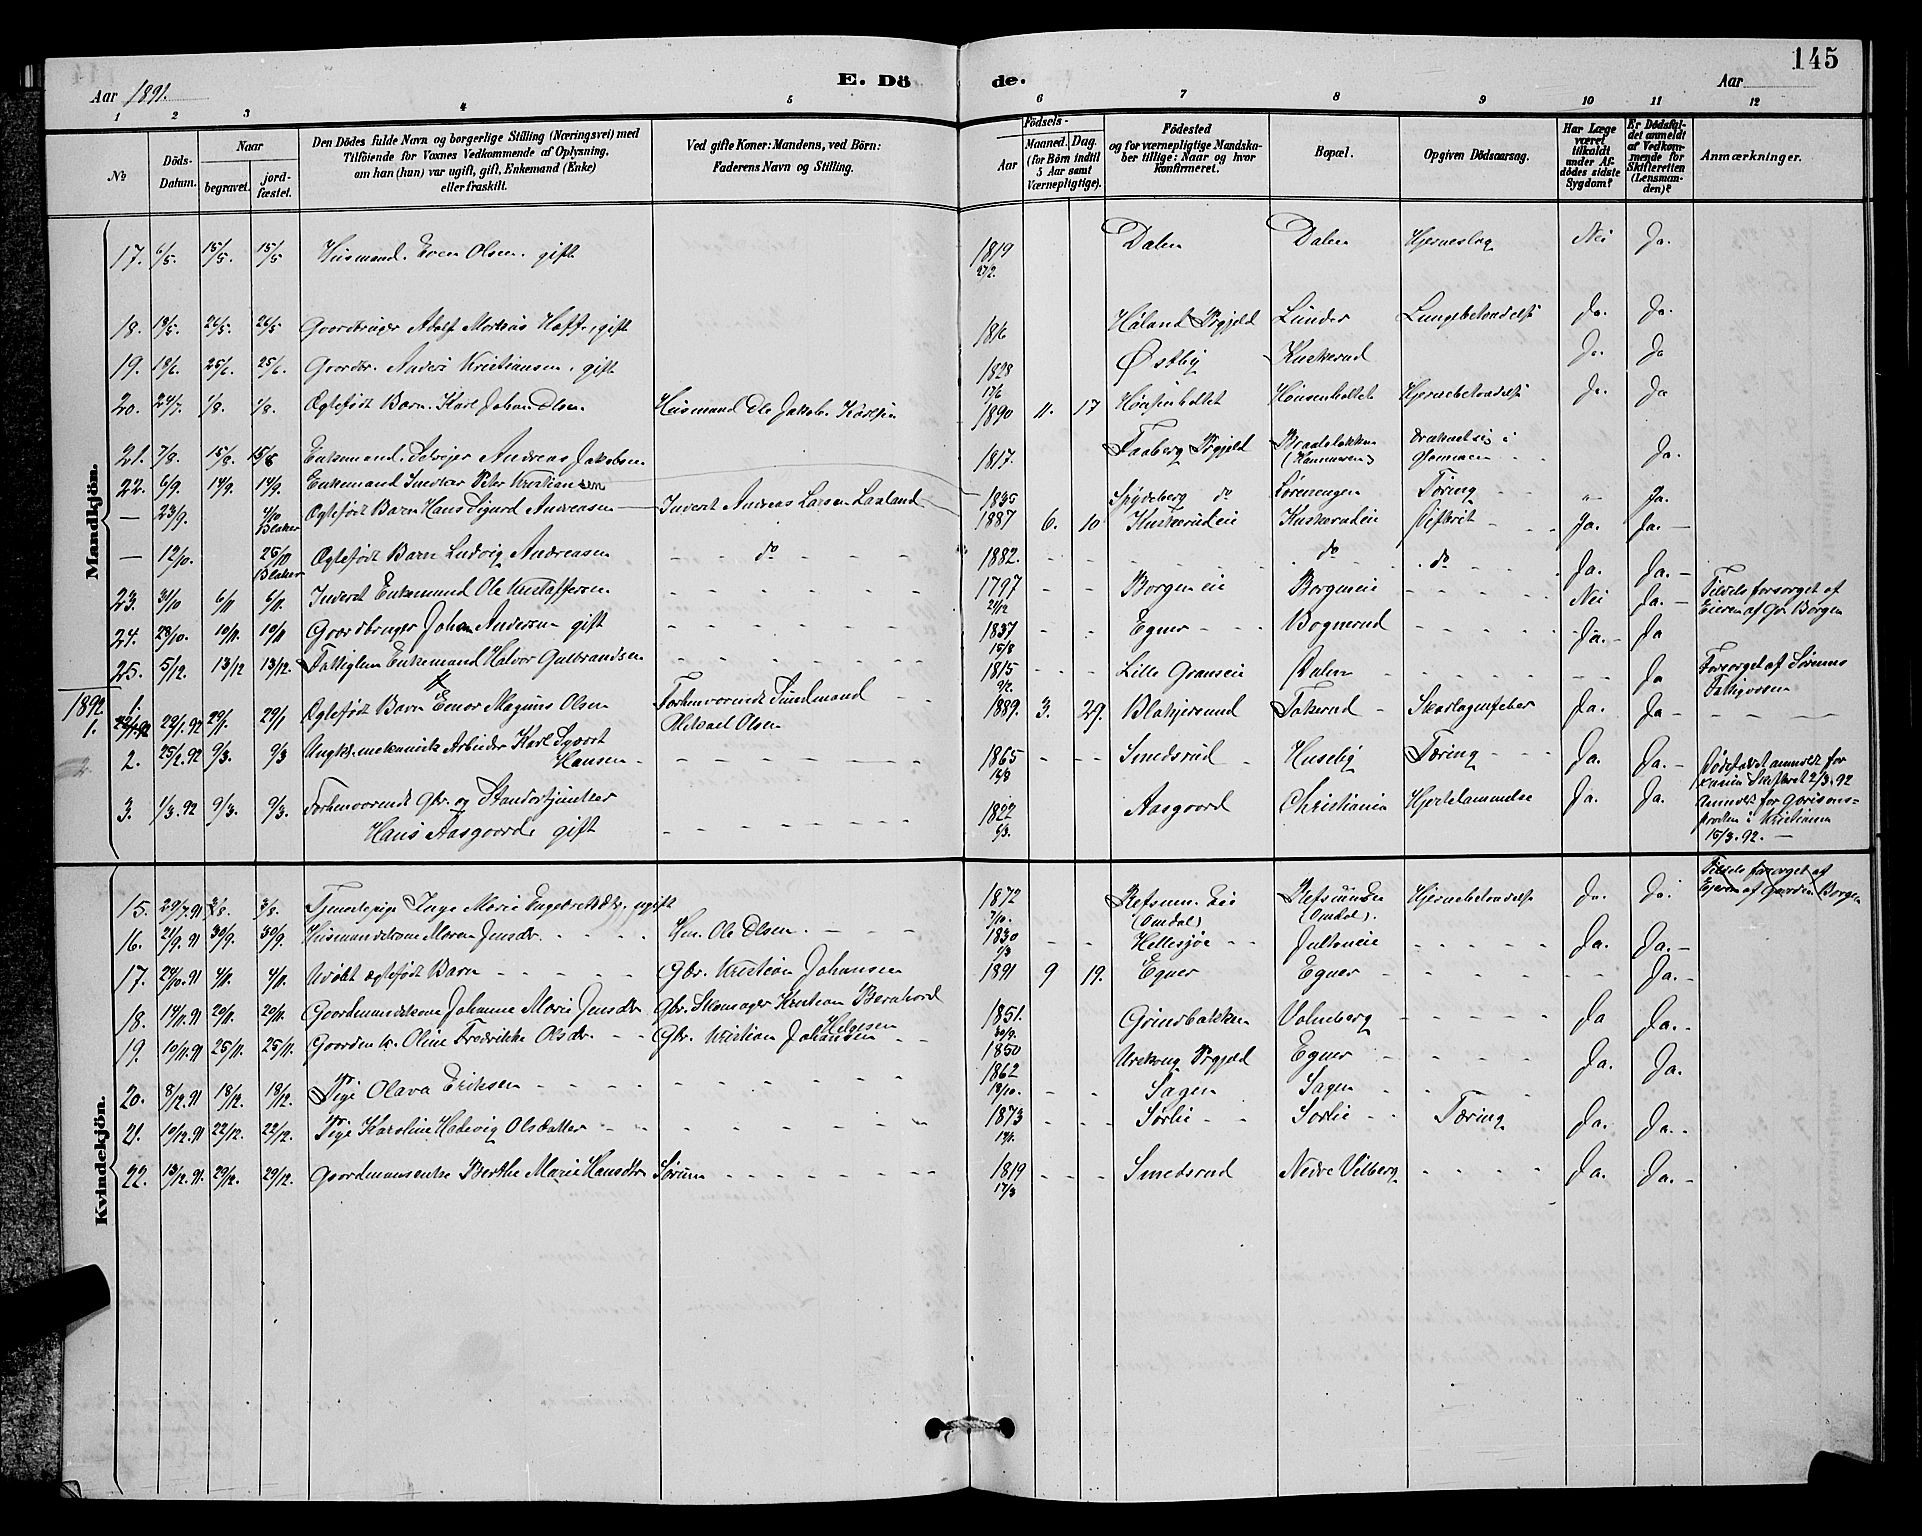 145
E. Dö de.
Aar 1891. Aar
1 2 3 4 5 6 7 8 9 10 11 12
№ Döds-Datum. Naar begravet. jord-fæstet. Den Dödes fulde Navn og borgerlige Stilling (Næringsvei) med Tilföiende for Voxnes Vedkommende af Oplysning, om han (hun) var ugift, gift, Enkemand (Enke) eller fraskilt. Ved gifte Koner: Mandens, ved Börn: Faderens Navn og Stilling. Födsels- Aar Maaned. Dag. (for Börn indtil 5 Aar samt Værnepligtige). Födested og for værnepligtige Mandska-ber tillige: Naar og hvor konfirmeret. Bopæl. Opgiven Dödsaarsag. Har Læge været tilkaldt under Af-dödes sidste Sygdom? Er Dödsfal-det anmeldt af Vedkom-mende for Skifteretten (Lensman-den)? Anmærkninger.
Mandkjön.
17. 6/5. 15/5. 15/5 Husmand. Even Olsen. gift 1819 27/2. Dalen Dalen Hjerneslag Nei Ja.
18. 19/5. 26/5. 26/5 Gaardbruger Adolf Hoff, gift 1816 Høland Prgjeld Lunder Lungebetændelse Ja. Ja.
19. 18/6. 25/6. 25/6. Gaardbr. Anders Kristiansen. gift 1828 17/6 Østby Kuskerud Ja. Ja
20. 24/7. 1/8. 1/8. Ægtefødt Barn. Karl Johan Olsen Husmand Ole Jakob Karlsen 1890 11. 17 Hønsenholtet Hjernebetændelse Ja. Ja
21. 7/8. 15/8. 15/8 Enkemand. Andreas Jakobsen 1817. Faaberg Prgjeld Ja.
22. 6/9. 14/9. 14/9. Enkemand Peter Kristiansen 1835 Spydeberg do Lørenengen Tæring " Ja.
— 23/9. 4/10 Blaker Ægtefødt Barn Hans Sigurd Andreasen Inderst Andreas Larsen Laaland 1887 6. 10 Kuskerudeie Kuskerudeie Difterit Ja. Ja. —
— 12/10. 25/10 Blaker Ægtefødt Barn Ludvig Andreasen do 1882. do do Ja. Ja. —
23. 31/10 6/11 6/11. Inderst Enkemand Ole Kristoffersen 1797 21/12 Borgen eie Borgeneie Nei Ja. — Tildels forsørget af Eieren af Gr. Borgen
24. 28/10. 10/11. 10/11 Gaardbruger Johan Andersen gift 1837 15/8 Egner Bognerud Ja. — Ja
25. 5/12. 13/12 13/12. Fattiglem Enkemand Halvor Gulbrandsen 1815 9/2. Lille Granseie Dalen Ja Forsørget af Sørums Fattigvæsen
1892
1. 29/1.92 29/1. 29/1 Ægtefødt Barn Einar Magnus Olsen Forhenværende Sundmand Mikael Olsen 1889. 3. 29. Blakjersund Fakerud Skarlagensfeber Ja. Ja —
2. 25/2.92 9/3. 9/3 Ungk. mekanisk Arbeider Karl Syvert Hansen 1865 Smedsrud Huseby Tæring Ja. Ja. — Dødsfaldet anmeldt for Skifteret 2/3.92
3. 1/3.92 9/3. 9/3. Forhenværende Gbr. og Standartjunker Hans Aasgaard gift 1822 6/3. Aasgaard Christiania Hjertelammelse Ja. Ja. Anmeldt for i Kristiania 15/3.92. —
Kvindekjön.
15. 29/7.91 3/8. 3/8. Tjenestepige Inga Marie Engebretsdtr. ugift 1872 7/10. Refsum Eie (Omdal) Refsum Eie (Omdal). Hjernebetændelse Ja. Ja. Tildels forsørget af Eieren af Gaarden Borgen
16. 21/9.91 30/9. 30/9. Husmandskone Maren Jensdr. Hm. Ole Olsen 1830 1/3 Hellesjøe Jultoneie Ja. Ja. —
17. 24/10.91 4/11. 4/11. Udøbt ægtefødt Barn Gbr. Kristian Johansen 1891 9 19. Egner Egner Ja. —
18. 14/11.91 20/11. 20/11. Gaardmandskone Johanne Marie Jensdr Gbr. Skomager Kristian Bernhard Helgesen 1851. 30/9. Grindbakken Valneberg Ja Ja. —
19. 19/11.91 25/11. 25/11. Gaardm. k. Oline Fredrikke Olsdr. Gbr. Kristian Johansen 1850 Urskoug Prgjeld Egner Ja. Ja.
20. 8/12.91 18/12. 18/12. Pige Olava Eriksen 1862 19/10. Sagen Sagen
21. 19/12.91 22/12. 22/12. Pige Karoline Hedevig Olsdatter 1873 Sørlie Sørlie Tæring Ja. Ja. —
22. 13/12.91. 29/12. 29/12. Gaardmansenke Berthe Marie Hansdtr Sørum 1819 17/3 Smedsrud Nedre Vilberg Ja. Ja. —